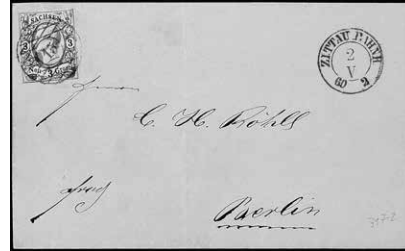 SACHSEN
3 3
Neu 3 Gr.
ZITTAU BAHNH
2
V
60
Herrn
C. H. Röhll
frey
Berlin